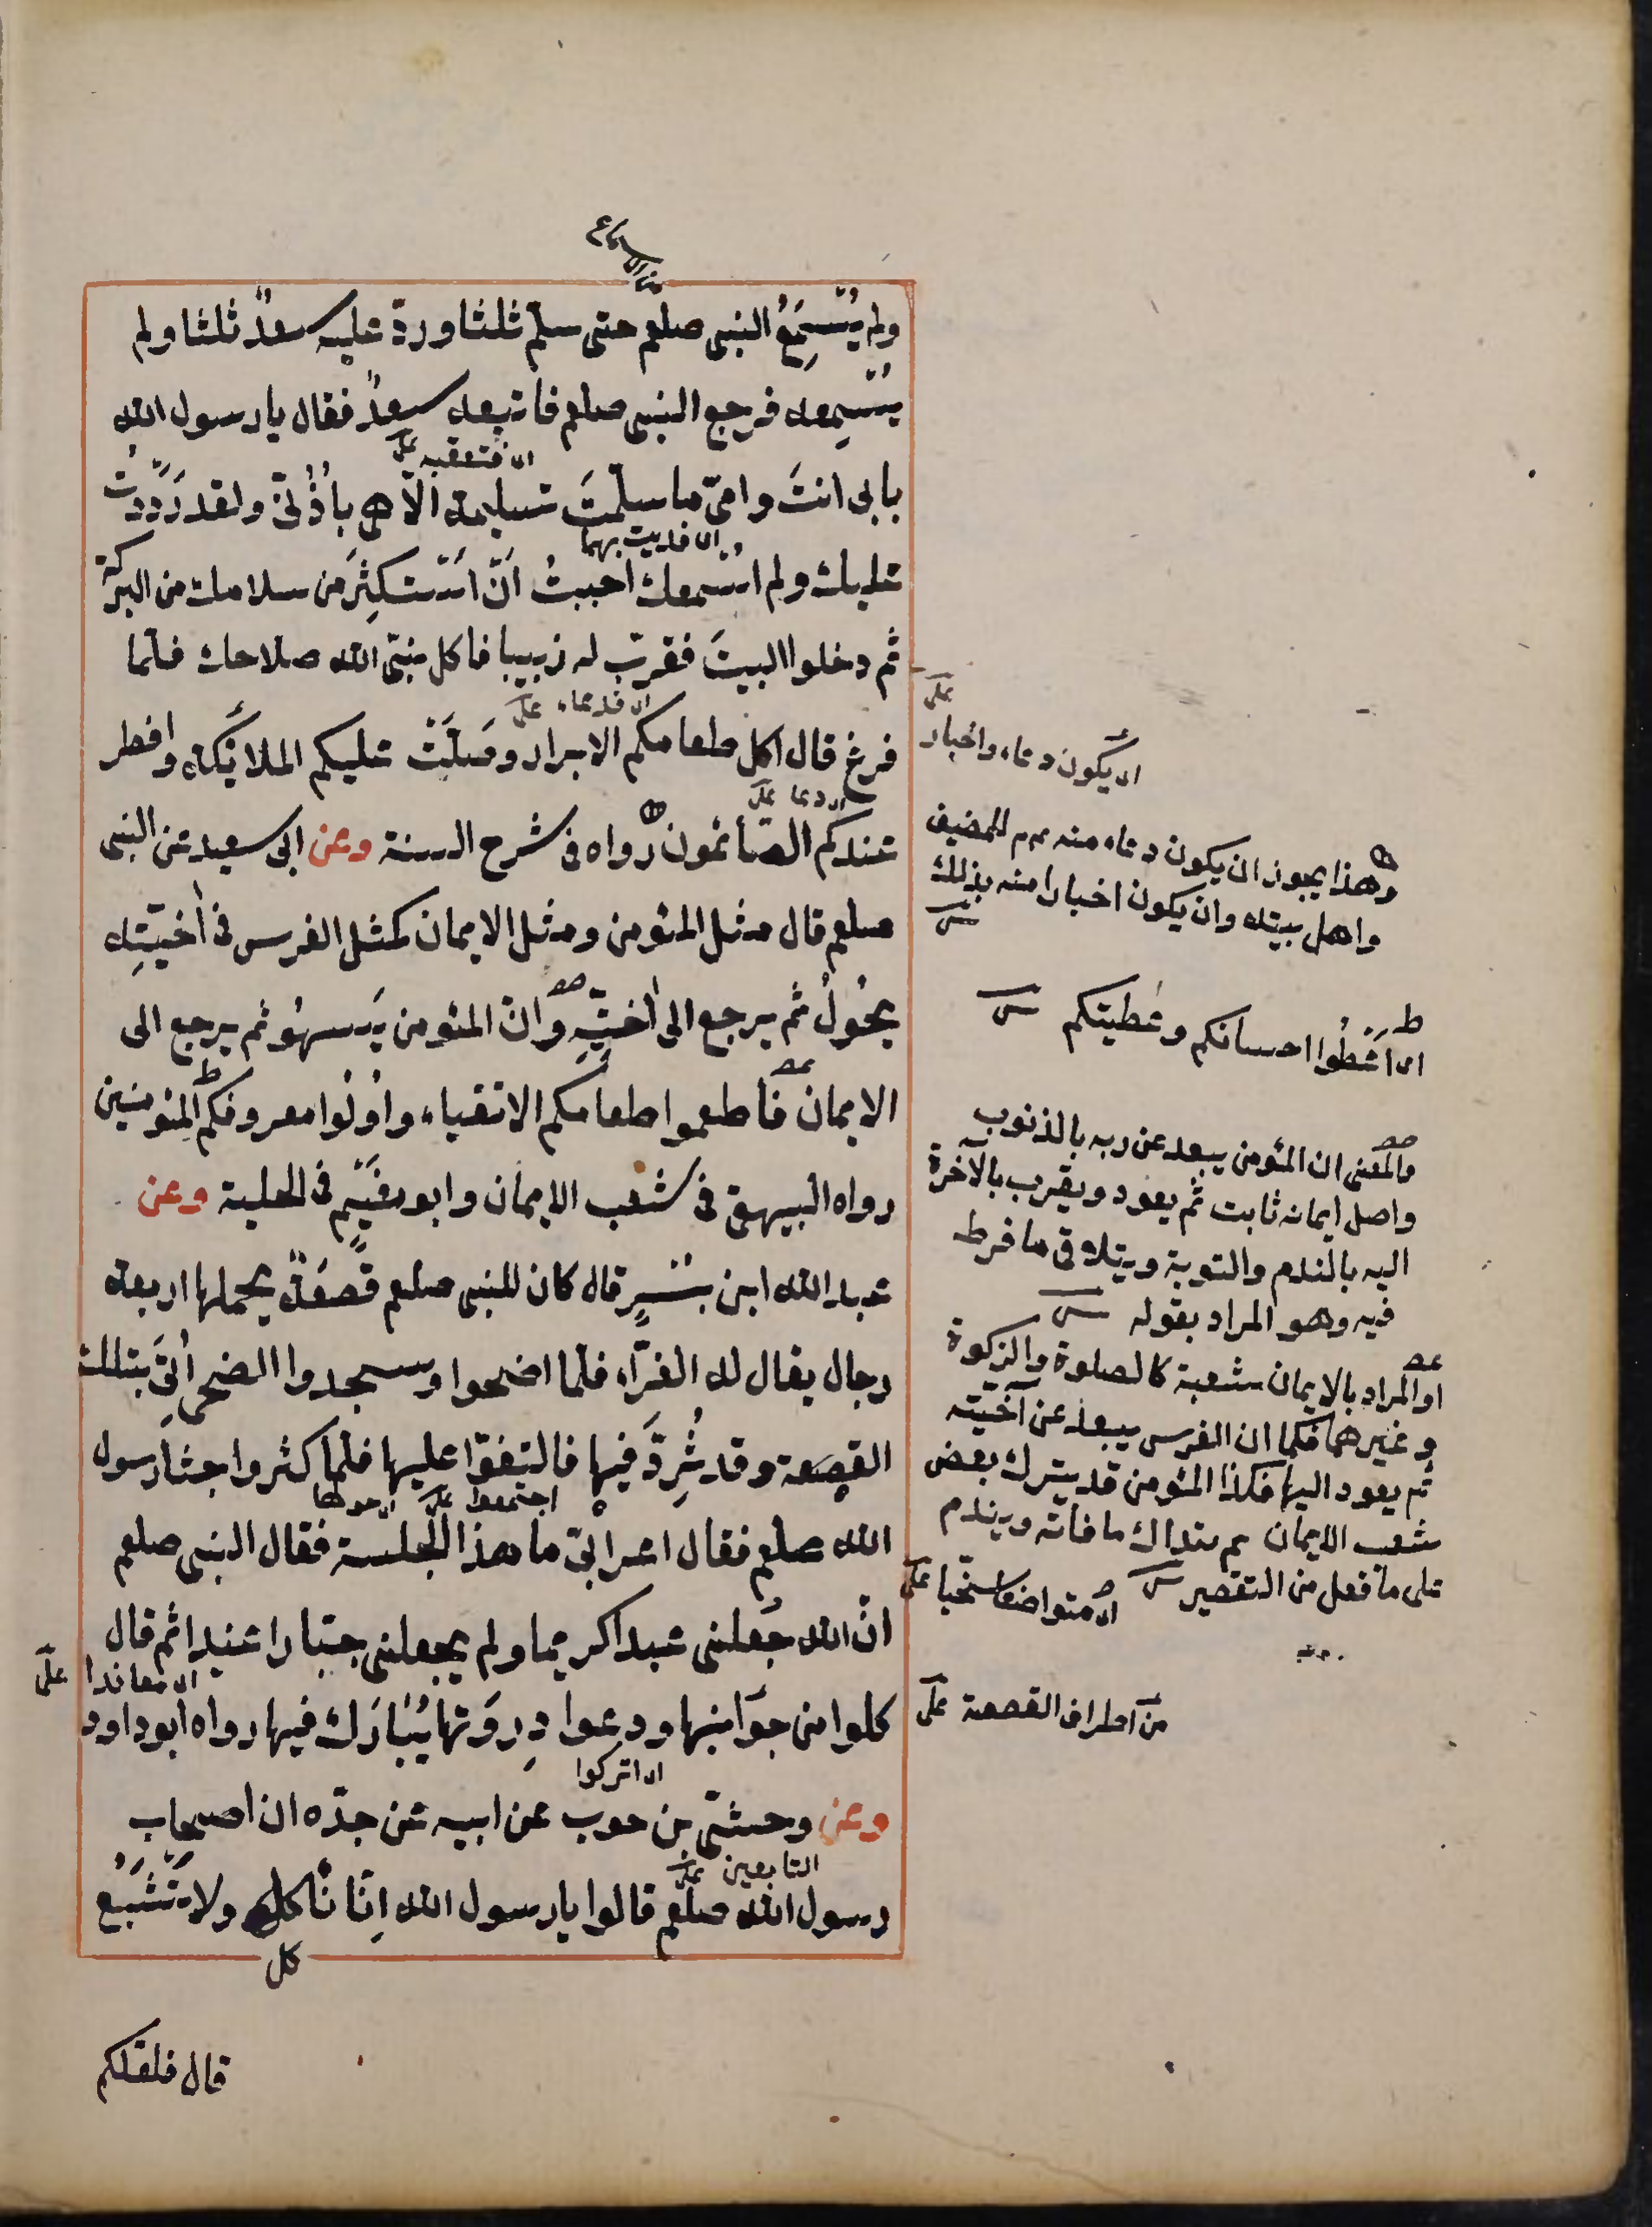 ولم يُسْمِعُ النبى صلعم حتى سلم ثلثا وردّ عليه سعدٌ ثلثا ولم
يُسْمِعه فرجع النبى صلعم فاتبعه سعدٌ فقال يا رسول الله
بابى انتَ وامىّ ما سلّمتَ تسليمة الّا هى باُذُنىّ ولقد رَدَدْتُ
اى فديت بهما
عليك ولم اُسْمعك احببتُ اَنْ اَسْتكثِرَ من سلامك من البركة
ثم دخلوا البيتَ فقرّب له زبيبا فاكل نبىّ الله صلاحك فلما
فرغ قال اكل طعامكم الابرار وصَلَّتْ عليكم الملائكة وافطر
عندكم الصّائمون رواه فى شرح السنة وعن ابى سعيد عن النبى
صلعم قال مثل المئومن ومثل الايمان كمثل الفرس فى اٰخيّتِه
يَجُولُ ثم يرجع الى اٰخيّتِهِ وانّ المئومن يَسهُو ثم يرجع الى
الايمان فاطعموا طعامكم الاتقياء واَوْلُوا معروفكم المئومنين
رواه البيهقى فى شعب الايمان وابو نعَيْمٍ فى الحلية وعن
عبد الله ابن بُسْرٍ قال كان للنبى صلعم قَصْعَةٌ يحملها اربعة
رجال يقال له الغرّاء فلما اضحوا وسجدوا الضحى اُتِىَ بتلك
القصَعة وقد ثُرِدَ فيها فالتفوّا عليها فلما كثروا جثا رسول
اجتمعوا على اى حولها
الله صلعم فقال اعرابىّ ما هذا الجلسة فقال النبى صلعم
انّ الله جَعلنى عبدا كريما ولم يجعلنى جبّارا عنيدا ثم قال
اى معاندا على
كلوا من جوَانبها ودعوا ذِروَتها يُبَارَك فيها رواه ابو داود
اى اتركوا
وعن وحشىّ بن حرب عن ابيه عن جدّه ان اصحاب
التابعين على
رسول الله صلعم قالوا يا رسول الله اِنّا نأكل ولا نَشْبَعُ
كل
قال فلعلكم
اى يكون دعاء واخبار
وهذا يجوز ان يكون دعاء منه عم للمضيف
واهل بيته وان يكون اخبارا منه بذلك
اى اَعْطُوا احسانكم وعَطيتكم
والمعنى ان المئومن يبعد عن ربه بالذنوب
واصل ايمانه ثابت ثم يعود ويقرب بالاخرة
اليه بالندم والتوبة ويتلاقى ما فرط
فيه وهو المراد بقوله
او المراد بالايمان شعبة كالصلوة والزكوة
وغيرهما فكما ان الفرس يبعد عن آخيّته
ثم يعود اليها فكذا المئومن قد يترك بعض
شعب الايمان ثم يتداك ما فاته ويندم
على ما فعل من التقصير
اى متواضعا سخيا على
من اطراف القصعة على